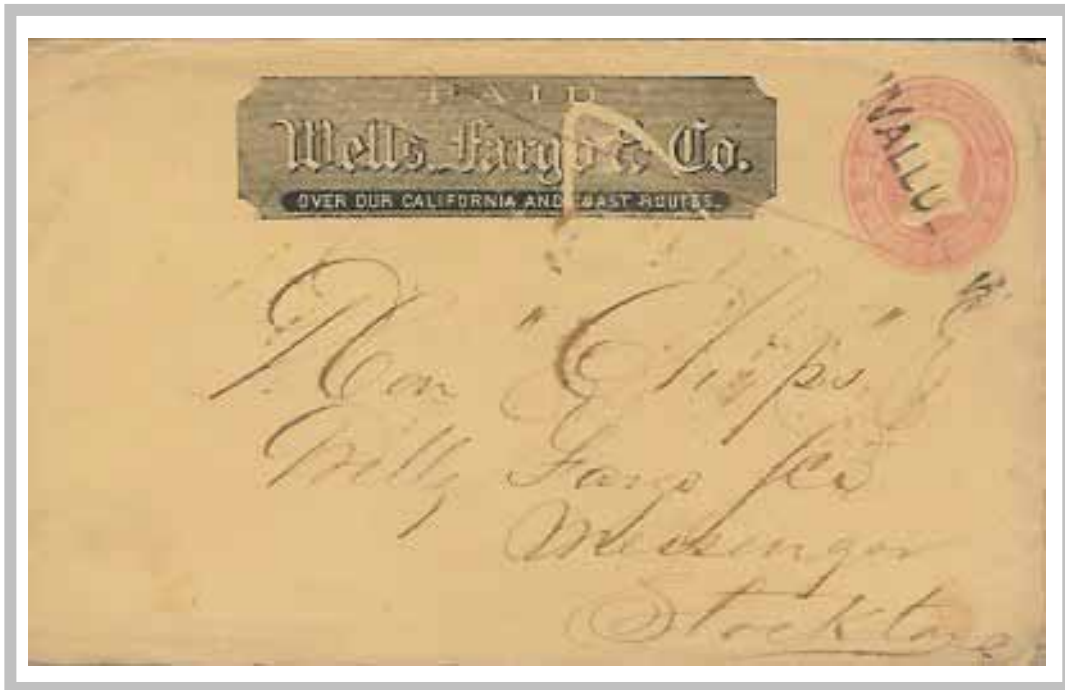 PAID
Wells, Fargo & Co.
OVER OUR CALIFORNIA AND COAST ROUTES.
Hon "Chips"
Wells Fargo &Co
Messenger
Stockton